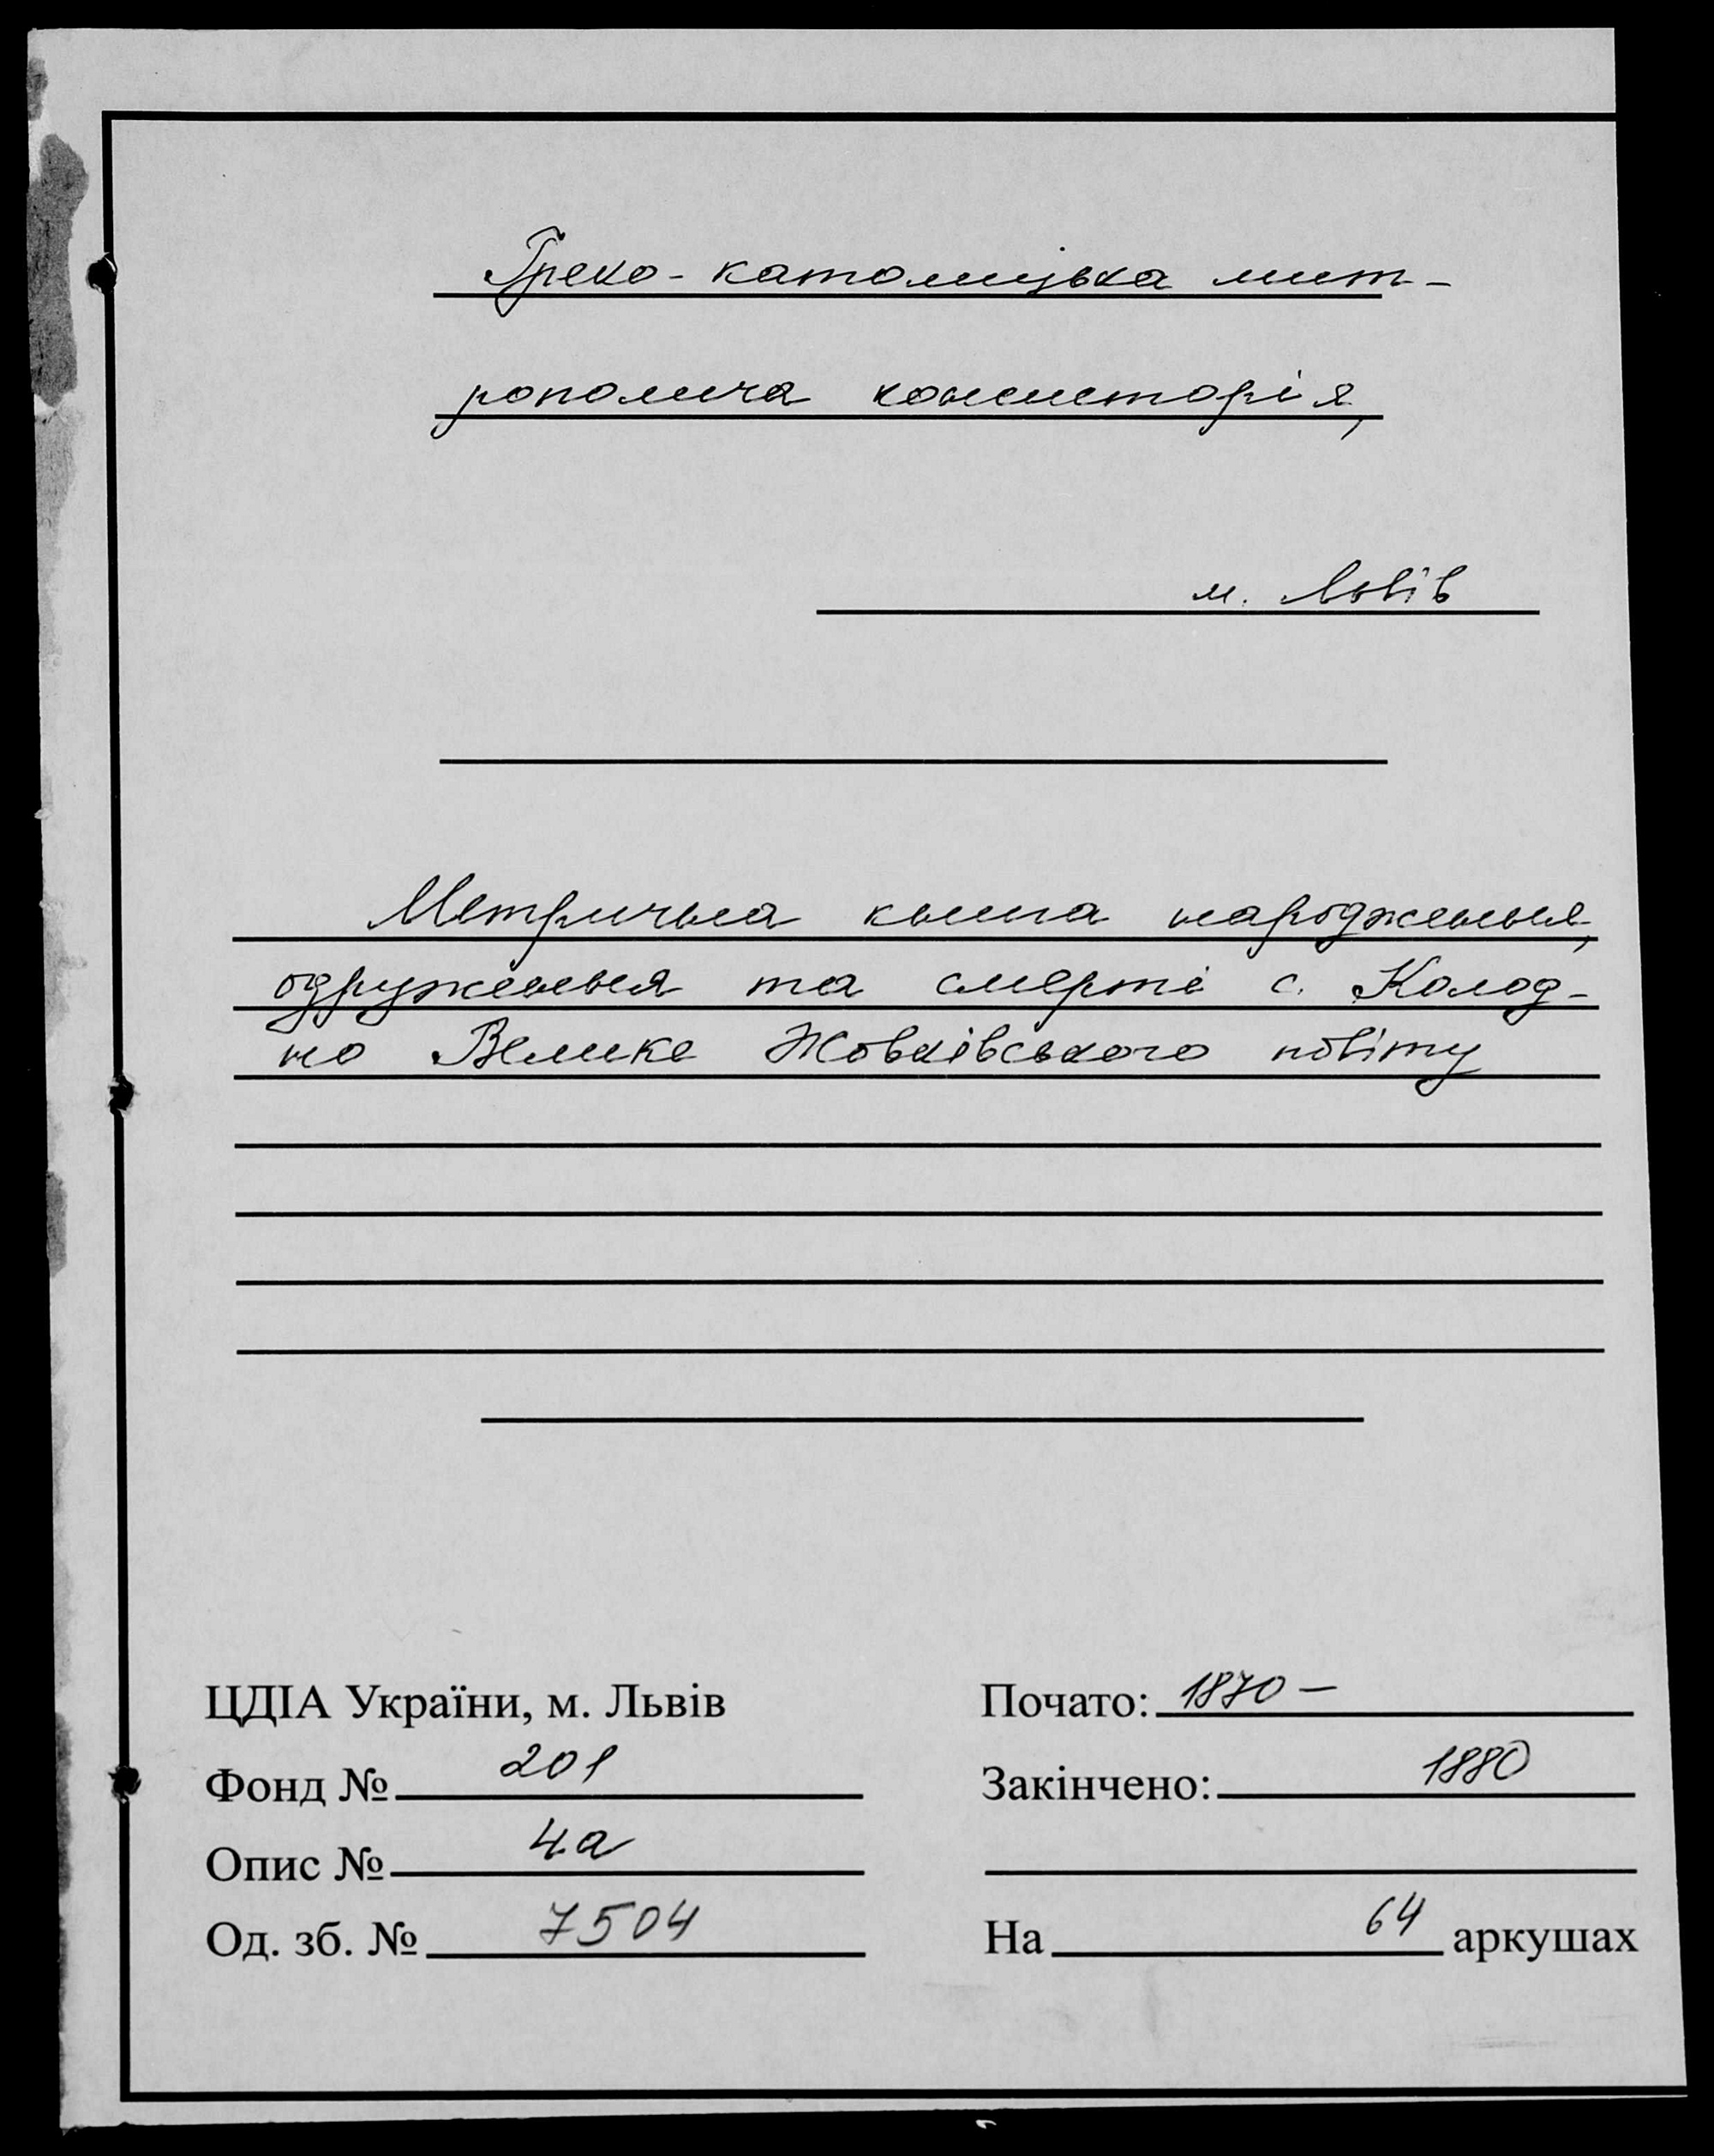 Греко-католицька мит-
рополича консисторія,
м. Львів
Метрична книга народження,
одруження та смерті с. Колод-
но Велике Жовківського повіту
ЦДІА України, м. Львів
Почато: 1870 –
Фонд № 201
Закінчено: 1880
Опис № 4а
Од. зб. № 7504
На 64 аркушах